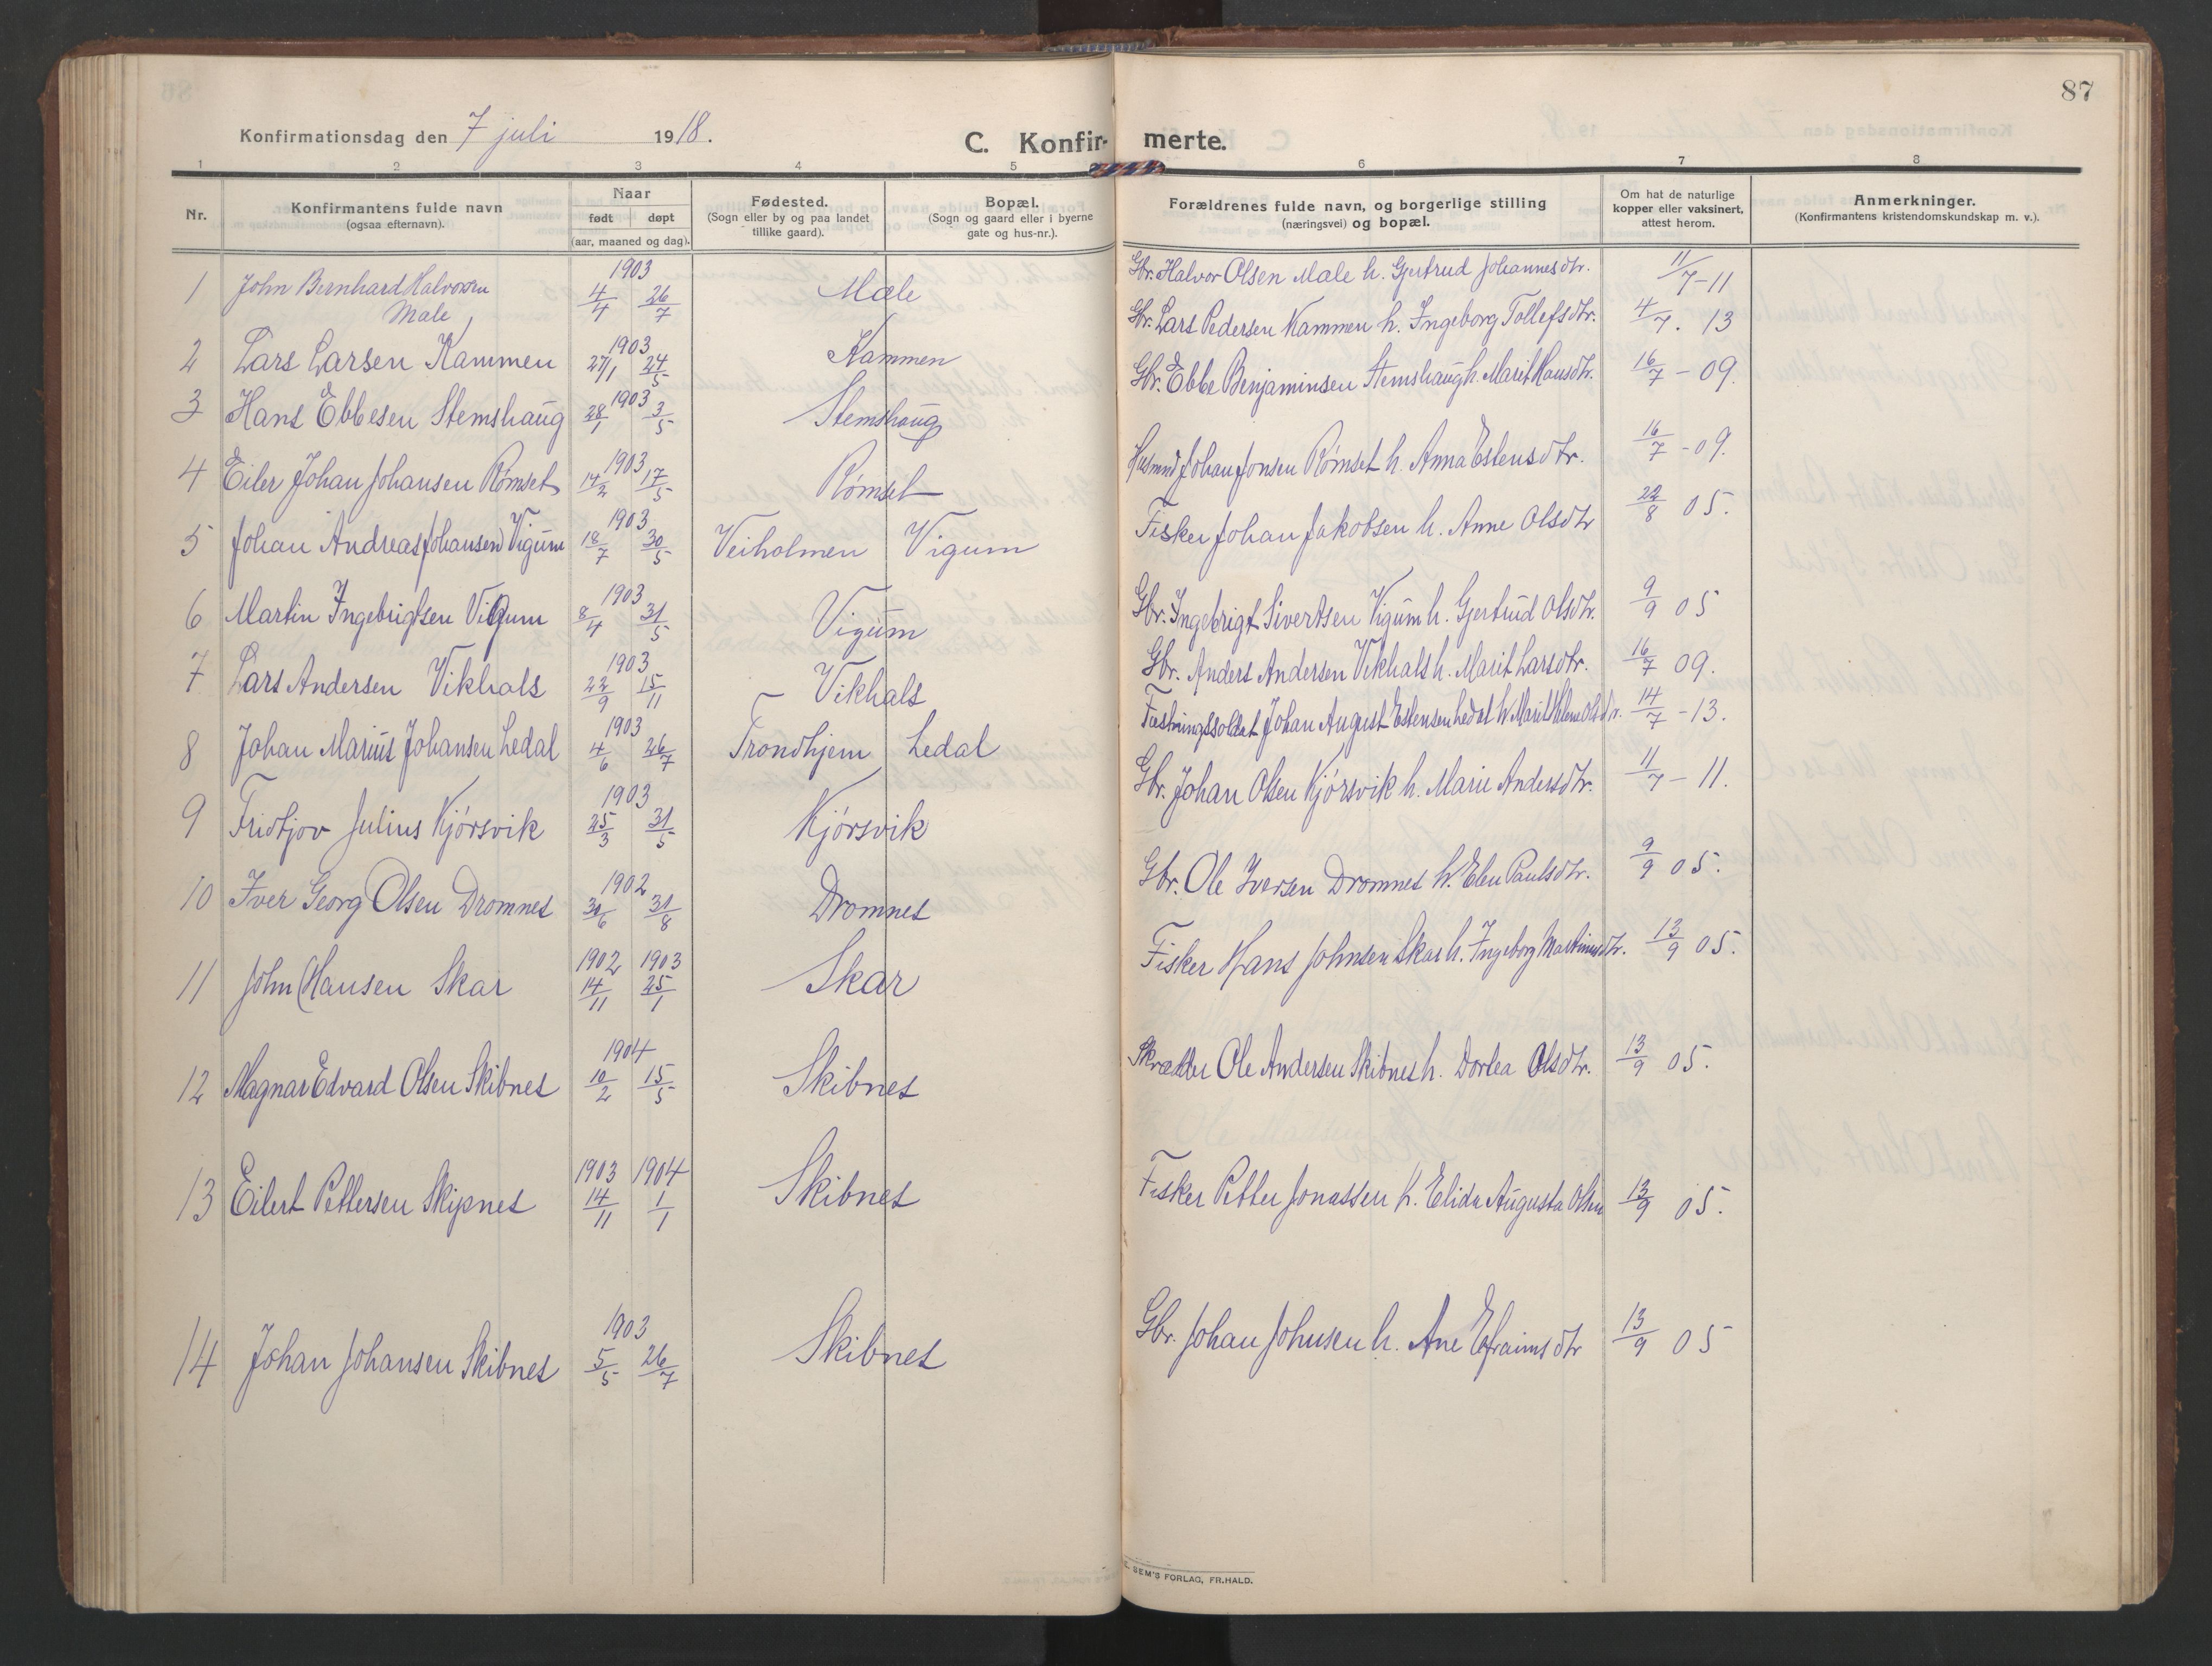 87
Konfirmationsdag den 7 juli 1918.
C. Konfir- merte.
1 2 3 4 5 6 7 8
Nr.
Konfirmantens fulde navn
(ogsaa efternavn).
Naar
født døpt
(aar, maaned og dag).
Fødested.
(Sogn eller by og paa landet
tillike gaard).
Bopæl.
(Sogn og gaard eller i byerne
gate og hus-nr.).
Forældrenes fulde navn, og borgerlige stilling
(næringsvei) og bopæl.
Om hat de naturlige
kopper eller vaksinert,
attest herom.
Anmerkninger.
(Konfirmantens kristendomskundskap m. v.).
1 John Bernhard Halvorsen Male 1903 4/4 26/7 Mæle Gbr. Halvor Olsen Male h. Gjertrud Johannesdtr. 11/7-11
2 Lars Larsen Kammen 1903 27/1 24/5 Kammen Gbr. Lars Pedersen Kammen h. Ingeborg Tollefsdtr. 4/7. 13
3 Hans Ebbesen Stemshaug 1903 28/1 3/5 Stemshaug Gbr. Ebbe Benjaminsen Stemshaug h. Marit Hansdtr. 16/7 - 09.
4 Eiler Johan Johansen Rømset 1903 14/2 17/5 Rømset Husmnd Johan Jonsen Rømset h. Anna Estensdtr. 16/7 - 09.
5 Johan Andreas Johansen Vigum 1903 18/7 30/5 Veiholmen Vigum Fisker Johan Jakobsen h. Anne Olsdtr 22/8 05.
6 Martin Ingebrigtsen Vigum 1903 8/4 31/5 Vigum Gbr. Ingebrigt Sivertsen Vigum h. Gjertrud Olsdtr. 9/9 05
7 Lars Andersen Vikhals 1903 22/9 15/11 Vikhals Gbr. Anders Andersen Vikhals h. Marit Larsdtr. 16/7 09.
8 Johan Marius Johansen Ledal 1903 4/6 26/7 Trondhjem Ledal Fæstningssoldat Johan August Estensen Ledal h. Marit Helene Olsdtr. 14/7 - 13.
9 Fridtjov Julius Kjørsvik 1903 25/3 31/5 Kjørsvik Gbr. Johan Olsen Kjørsvik h. Marie Andersdtr. 11/7 - 11.
10 Iver Georg Olsen Dromnes 1902 30/6 31/8 Dromnes Gbr. Ole Iversen Dromnes h. Elen Paulsdtr. 9/9 05.
11 John Hansen Skar 1902 14/11 1903 25/1 Skar Fisker Hans Johnsen Skar h. Ingeborg Martinusdtr. 13/9 05.
12 Magnar Edvard Olsen Skibnes 1904 10/2 15/5 Skibnes Skrædder Ole Andersen Skibnes h. Dortea Olsdtr. 13/9 05.
13 Eilert Pettersen Skipnes 1903 14/11 1904 1/1 Skibnes Fisker Petter Jonassen h. Elida Augusta Olsen 13/9 05.
14 Johan Johansen Skibnes 1903 5/5 26/7 Skibnes Gbr. Johan Johnsen h. Ane Efraimsdtr 13/9 05
SEM'S FORLAG, FR.HALD.